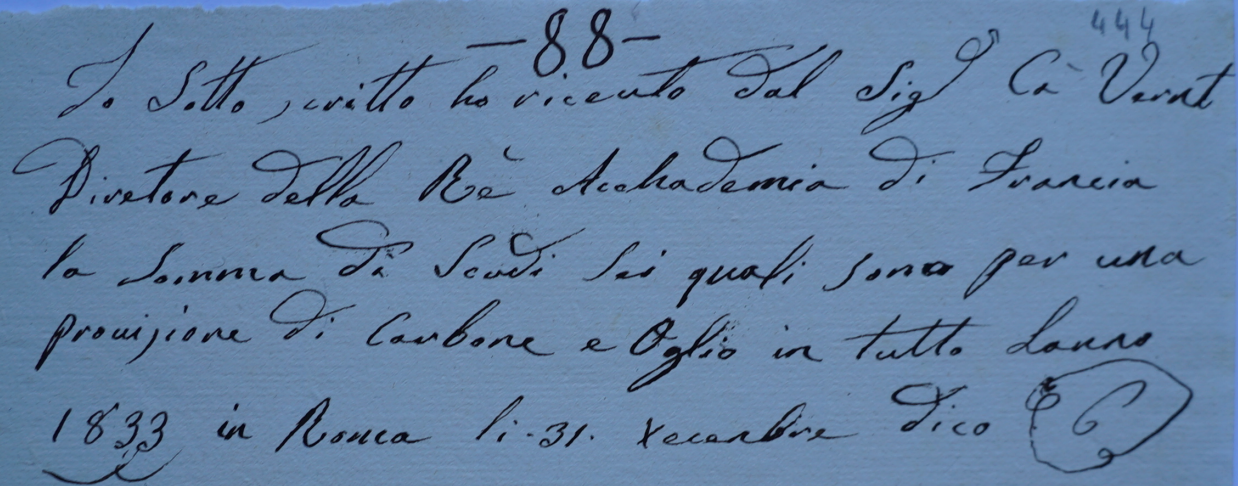 -88-
444
Io Sotto, critto ho riceuto dal Sigr Cà Vernt
Diretore della Rè Acchademia di Francia
la somma di Scudi sei quali sono per una
prouisione di Carbone e Oglio in tutto Lanno
1833 in Roma li·31· Xecenbre dico 6